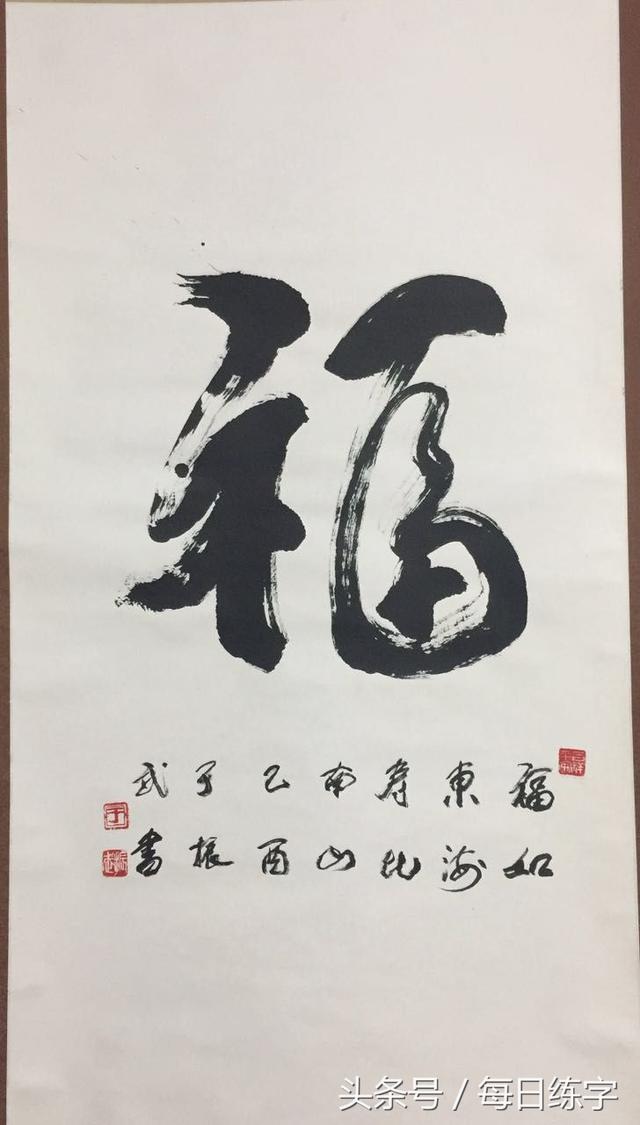 福
福如
東海
寿比
南山
乙酉
于振
武書
头条号 / 每日练字